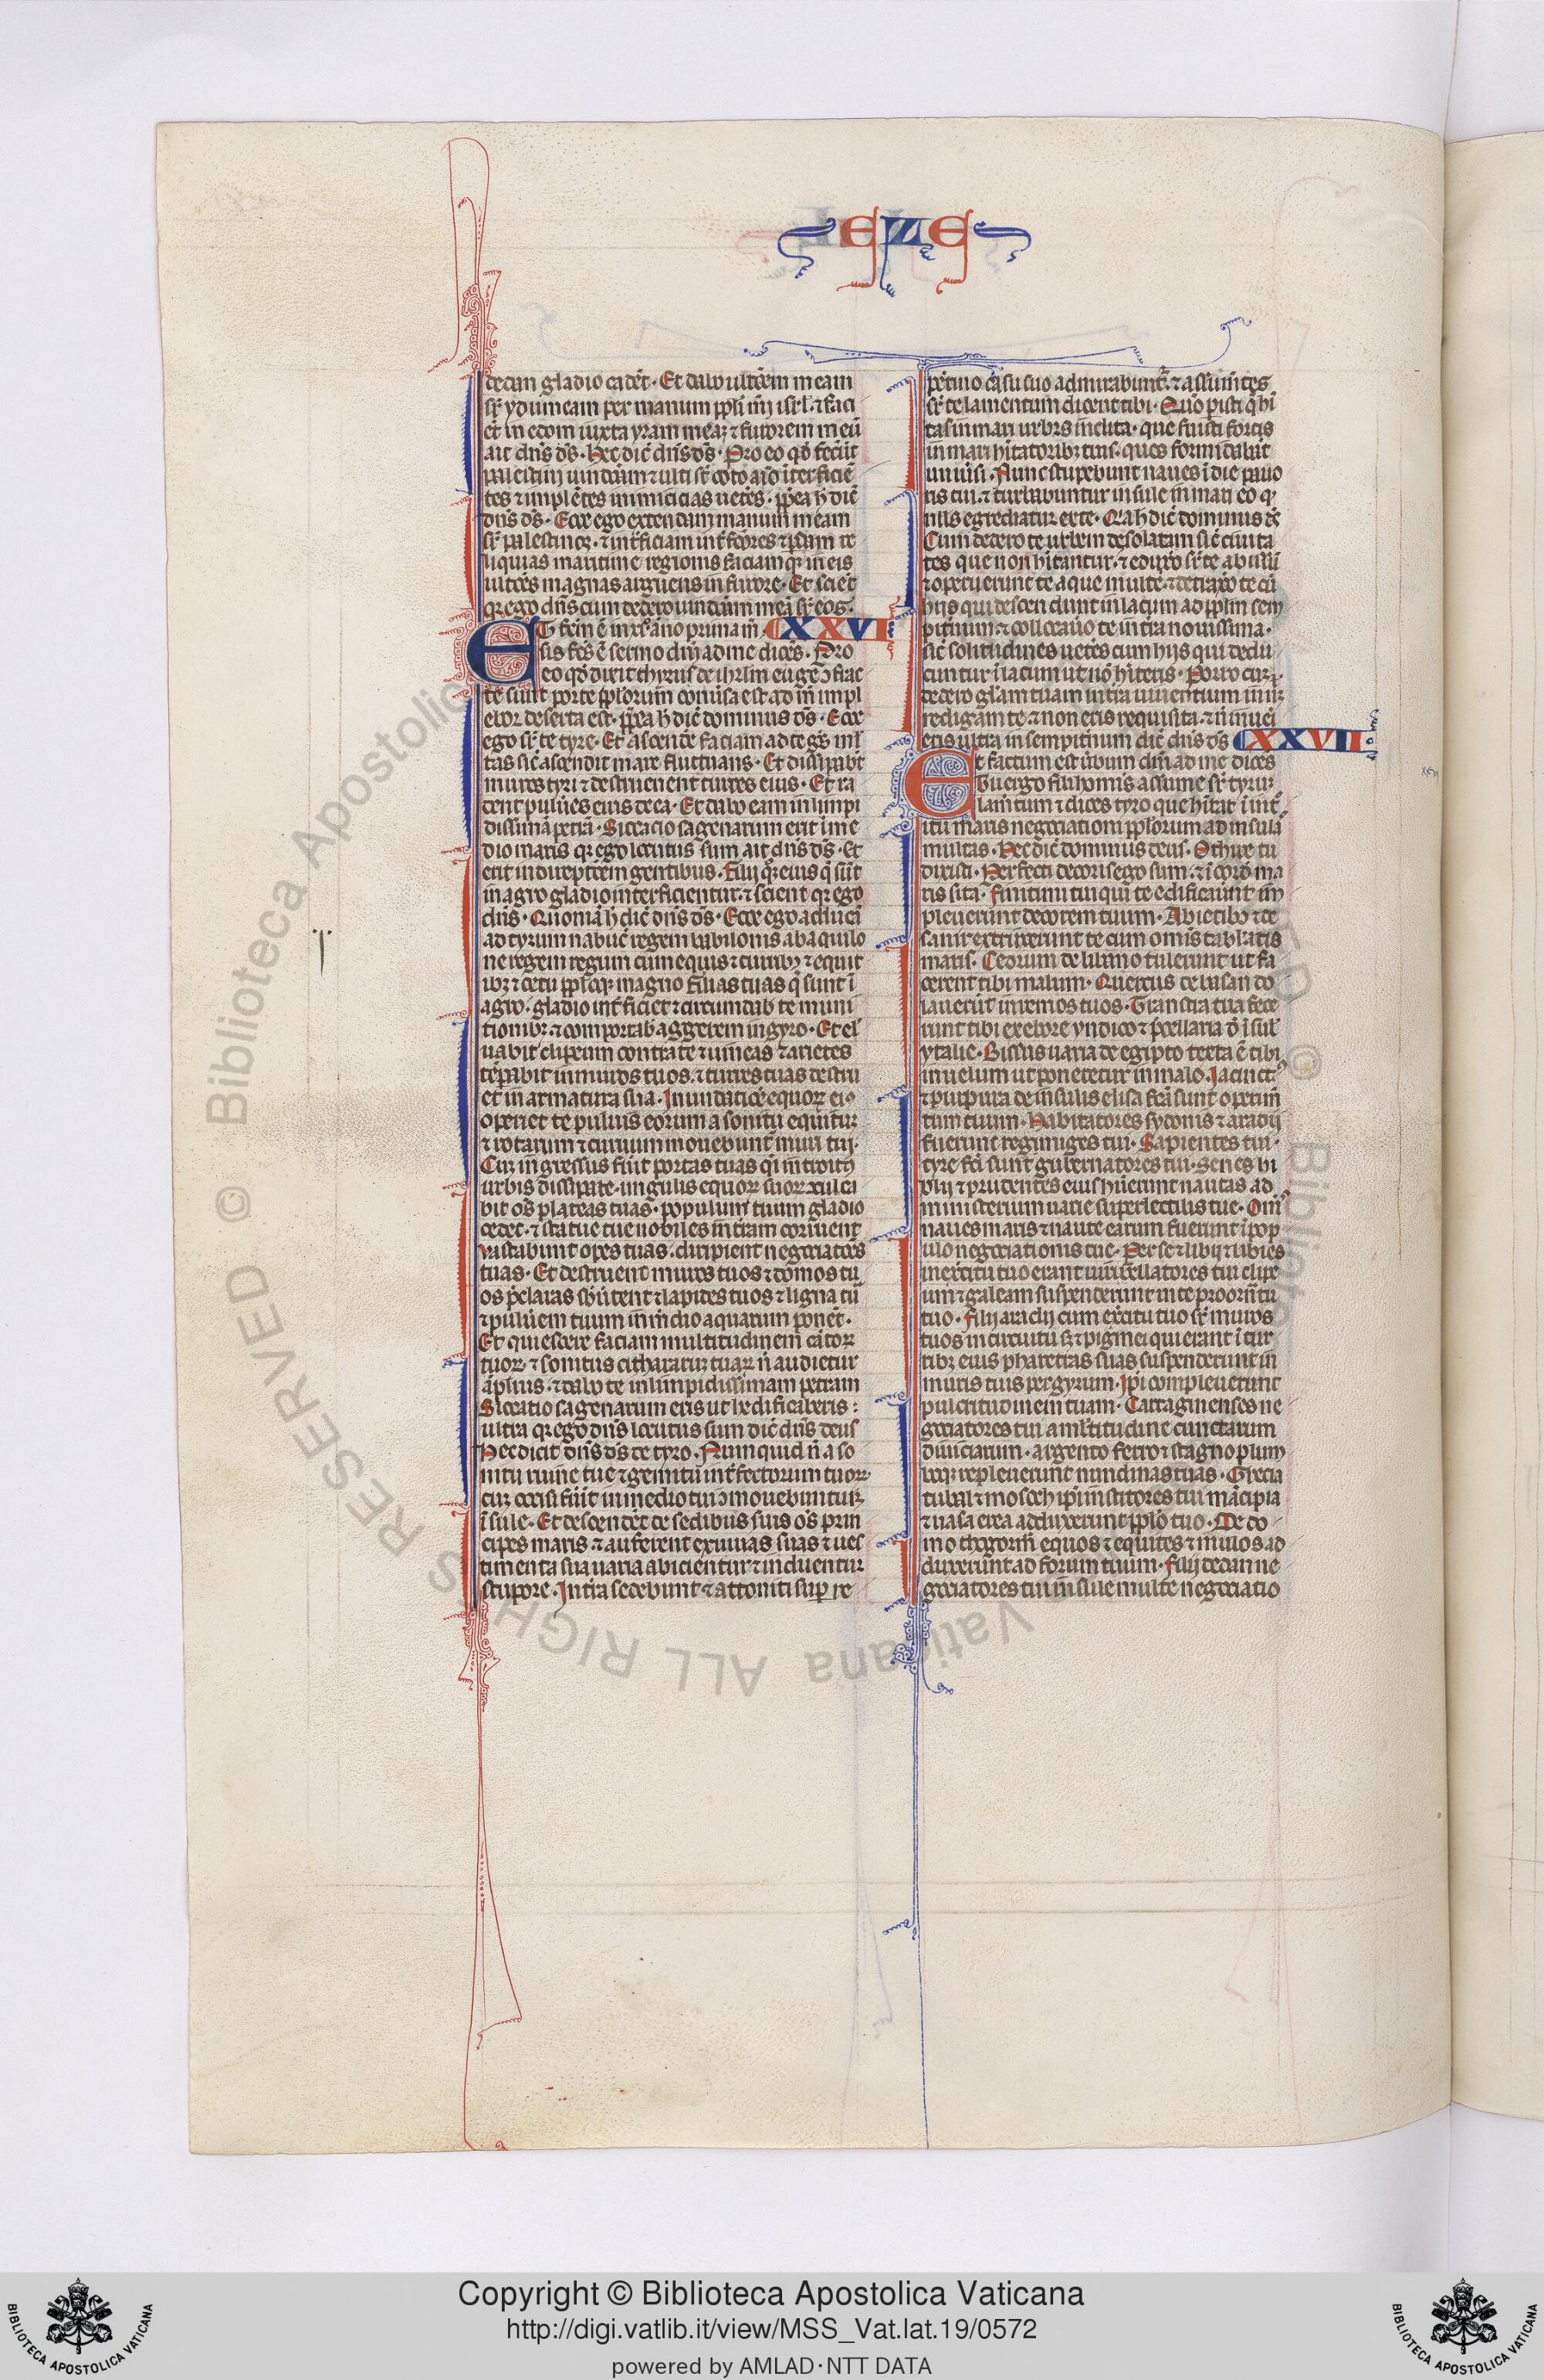 EZE
dedan gladio cadēt. Et dabo ultōem meam
sr̄ ydumeam per manum ppl̄i mei isrl̄. ⁊ faci
et in edom iuxta yram meaꝫ ⁊ furorem meū
ait dn̄s ds̄. Hec dic̄ dn̄s ds̄. Pro eo qd̄ fecer̄t
palestini
tes ⁊ implētes inimicicias ueteˢ. ꝓpea h̄ dic̄
dn̄s ds̄. Ecce ego extendam manum meam
sr̄ palestinos. ⁊ int̄ficiam int̄fc̄ores ⁊ ꝑdam re
liquias maritime regionis faciamqꝫ in eis
ultōes magnas arguens in furore. Et sciēt
qꝛ ego dn̄s cum dedero uindc̄am meā sr̄ eos.
XXVI
ET fcm̄ ē in xiº año prima m̄
sis fcs̄ ē sermo dn̄i ad me dicēs. Pro
eo qd̄ dixit thyrus de ihrlm̄ euge ɔfrac
te sunt porte pplorum conuersa est ad m̄ impl
ebor deserta est. ꝓpea h̄ dic̄ dominus ds̄. Ecce
ego sr̄ te tyre. Et ascende faciam ad te gēs ml̄
tas sic̄ ascendit mare fluctuans. Et dissipabt̄
muros tyri ⁊ destruent turres eius. Et ra
dent puluēs eius de ea. Et dabo eam in limpi
dissimā petrā. Siccacio sagenarum erit ī me
dio maris qꝛ ego locutus sum ait dn̄s ds̄. Et
erit in direptōem gentibus. Filij qꝫ eius q̄ sūt
in agro gladio interficientur. ⁊ scient qꝛ ego
dn̄s. Quoniā h̄ dic̄ dn̄s ds̄. Ecce ego adducā
ad tyrum nabuc̄ regem babilonis ab aquilo
ne regem regum cum equis ⁊ curribꝫ ⁊ equit
ibꝫ ⁊ cetu pploqꝫ magno filias tuas q̄ sunt ī
agro. gladio int̄ficiet ⁊ circumdab te muni
tionibꝫ ⁊ comportab̄ aggerem in gyro. Et el
uabit clipeum contra te ⁊ uineas ⁊ arietes
tēpabit in muros tuos. ⁊ turres tuas destru
et in armatura sua. Inundatiōe equoꝝ eiꝰ
operiet te puluis eorum a sonitu equitum
⁊ rotarum ⁊ curruum mouebunt̄ muri tui.
Cuꝫ ingressus fūit portas tuas q̄i introitū
urbis dissipate. ungulis equoꝝ suoꝝ ɔculca
bit os̄ plateas tuas. populum tuum gladio
cedet. ⁊ statue tue nobiles in tram corruent
vastabunt opes tuas. diripient negociatōes
tuas. Et destruent muros tuos ⁊ domos tu
os p̄claras sbūtent ⁊ lapides tuos ⁊ ligna tū
⁊ puluēm tuum in m̄dio aquarum ponēt.
Et quiescere faciam multitudinem cātoꝝ
tuoꝝ. ⁊ sonitus cithararum tuaꝝ n̄ audietur
āplius. ⁊ dabo te in limpidissimam petram
Siccatio sagenarum eris ut hedificaberis
ultra qꝛ ego dn̄s locutus sum dic̄ dn̄s deus
Hec dicit dn̄s ds̄ de tyro. Nunquid n̄ a so
nitu ruine tue ⁊ gemitu int̄fectorum tuoꝝ
cuꝫ occisi fūit in medio tui ɔmouebuntur
īsule. Et descendēt de sedibus suis os̄ prin
cipes maris. ⁊ auferent exuuias suas ⁊ ues
timenta sua uaria abicientur ⁊ induentur
stupore. Intra sedebunt ⁊ attoniti suꝑ re
pētino casu tuo admirabunt̄. ⁊ assumētes
sr̄ te lamentum dicent tibi. Quō pisti q̄ hī
tas in mari urbs inclita. que fuisti fortis
in mari cum hītatoribꝫ tuis. ques formidabāt
uniūsi. Nunc stupebunt naues ī die pauo
ris tui. ⁊ turbabuntur insule in mari eo qꝫ
nllꝰ egrediatur ex te. Qꝛ h̄ dic̄ dominus ds̄
Cum dedero te urbem desolatam sic̄ ciuita
tes que non hītantur. ⁊ eduxo sr̄ te abissū
⁊ operuerint te aque multe. ⁊ detraxo te cū
hijs qui descendunt in lacum ad pplm sem
pit̄num ⁊ collocauo te in tra nouissima.
sic̄ solitudines uetēs cum hijs qui dedu
cuntur ī lacum ut nō hīteris. Porro cuꝫ
dedero glam̄ tuam in tra uiuentium in nꝫ
redigam te. ⁊ non eris requisita ⁊ n̄ inuei
eris ultra in sempit̄num dic̄ dn̄s ds̄
XXVII
Et factum est ūbum dn̄i ad me dicēs
Tu ergo fili hominis assume sr̄ tyrum
lam̄tum ⁊ dices tyro que hītat ī int
itu maris negociationi pplorum ad insulā
multas. Hec dic̄ dominus deus. O thire tu
dixisti. Perfecti decoris ego sum. ⁊ ī corde ma
ris sita. Finitimi tui qui te edificarūnt im
pleuerunt decorem tuum. Abietibꝰ de
sanir extruxerunt te cum omīs tabl̄atis
maris. Cedrum de libano tulerunt ut fa
cerent tibi malum. Quercus de basan do
lauerūt in remos tuos. Transtra tua fece
runt tibi ex ebore yndico ⁊ p̄toriola d̄ īsul̄
ytalie. Bissus uaria de egipto texta ē tibi
in uelum ut poneretur in malo. Iacinctꝰ
⁊ purpura de insulis elisa fc̄a sunt operim̄
tum tuum. Habitatores sydonis ⁊ aradij
fuerunt remiges tui. Sapientes tui
tyre fc̄i sunt gubernatores tui. Senes bi
blij ⁊ prudentes eius hūerunt nautas ad
ministerium uarie supellectilis tue. Om̄s
naues maris ⁊ naute earum fuerunt ī pop
ulo negociationis tue. Perse ⁊ libij ⁊ libies
in exc̄itu tuo erant uiri bellatores tui clipe
um ⁊ galeam suspenderunt in te pro ornatu
tuo. Filij aradij cum exc̄itu tuo sr̄ muros
tuos in circuitu sꝫ ⁊ pigmei qui erant ī tur
ribꝫ eius pharetras suas suspenderunt in
muris tuis per gyrum. Ip̄i compleuerunt
pulcritudinem tuam. Cartaginenses ne
gociatores tui a ml̄titudine cunctarum
diuiciarum. argento ferro ⁊ stagno plum
boqꝫ repleuerunt nundinas tuas. Grecia
tubal ⁊ mosoch ip̄i institores tui mācipia
⁊ uasa erea adduxerunt pplo tuo. De do
mo thogorm̄ equos ⁊ equites ⁊ mulos ad
duxerunt ad forum tuum. Filij dedan ne
gociatores tui insule multe negociatio
Copyright © Biblioteca Apostolica Vaticana
http://digi.vatlib.it/view/MSS_Vat.lat.19/0572
powered by AMLAD·NTT DATA
BIBLIOTECA APOSTOLICA VATICANA
BIBLIOTECA APOSTOLICA VATICANA
© Biblioteca Apostolica Vaticana ALL RIGHTS RESERVED